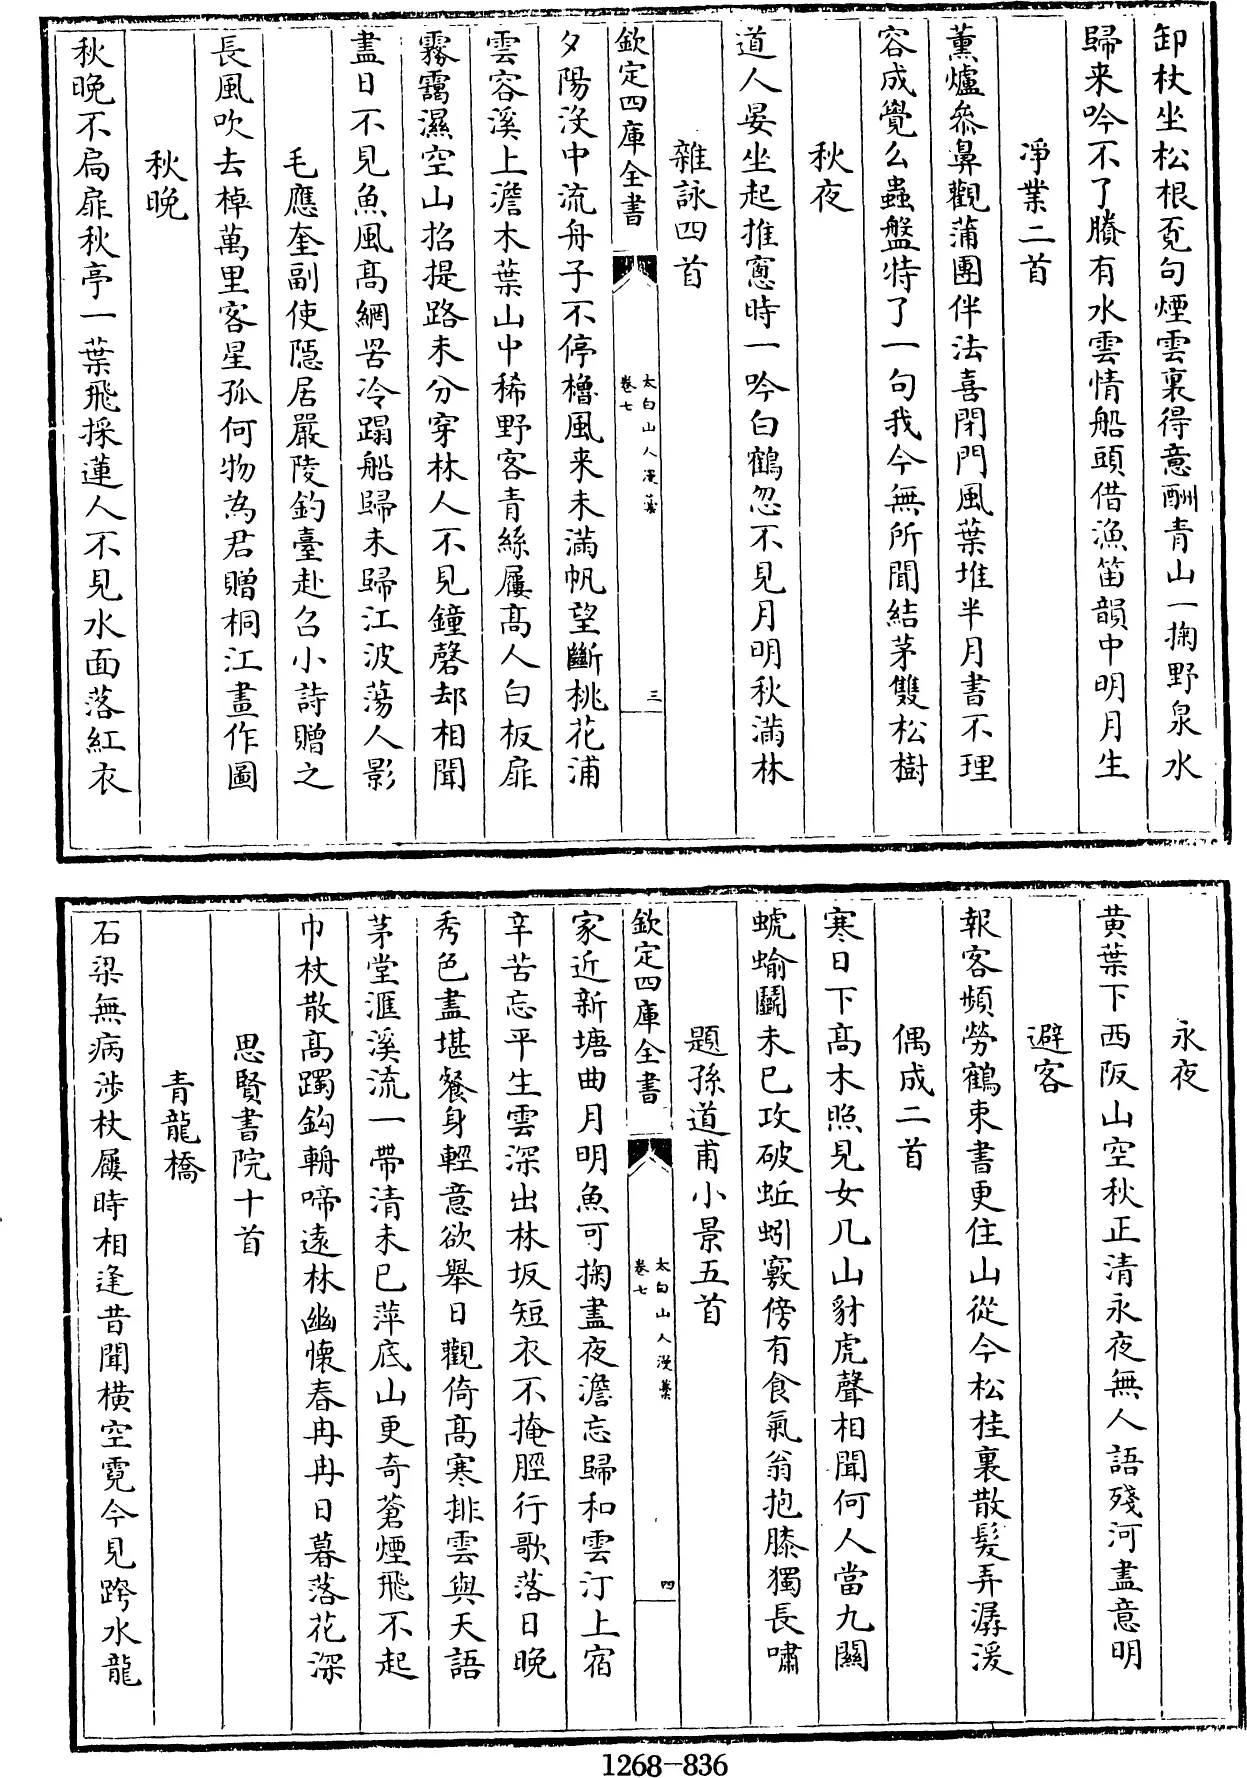 卸杖坐松根覔句煙雲裏得意酬青山一掬野泉水
歸来吟不了賸有水雲情船頭借漁笛韻中明月生
淨業二首
薫爐叅鼻觀蒲團伴法喜閉門風葉堆半月書不理
容成覺么蟲盤特了一句我今無所聞結茅雙松樹
秋夜
道人晏坐起推窻時一吟白鶴忽不見月明秋滿林
雜詠四首
欽定四庫全書
太白山人漫藁
卷七
三
夕陽沒中流舟子不停櫓風来未滿帆望斷桃花浦
雲容溪上澹木葉山中稀野客青絲屨髙人白板扉
霧靄濕空山招提路未分穿林人不見鐘磬却相聞
盡日不見魚風髙網罟冷蹋船歸未歸江波蕩人影
毛應奎副使隱居嚴陵釣臺赴召小詩贈之
長風吹去棹萬里客星孤何物為君贈桐江畫作圖
秋晚
秋晚不扄扉秋亭一葉飛採蓮人不見水面落紅衣
永夜
黄葉下西阪山空秋正清永夜無人語殘河盡意明
避客
報客頻勞鶴束書更住山從今松桂裏散髮弄潺湲
偶成二首
寒日下髙木照見女几山豺虎聲相聞何人當九關
螔蝓鬬未已攻破蚯蚓竅傍有食氣翁抱膝獨長嘯
題孫道甫小景五首
欽定四庫全書
太白山人漫藁
卷七
四
家近新塘曲月明魚可掬盡夜澹忘歸和雲汀上宿
辛苦忘平生雲深出林坂短衣不掩脛行歌落日晚
秀色盡堪餐身輕意欲舉日觀倚髙寒排雲與天語
茅堂滙溪流一帶清未已萍底山更奇蒼煙飛不起
巾杖散髙躅鈎輈啼逺林幽懐春冉冉日暮落花深
思賢書院十首
青龍橋
石梁無病涉杖屨時相逢昔聞橫空霓今見跨水龍
1268-836